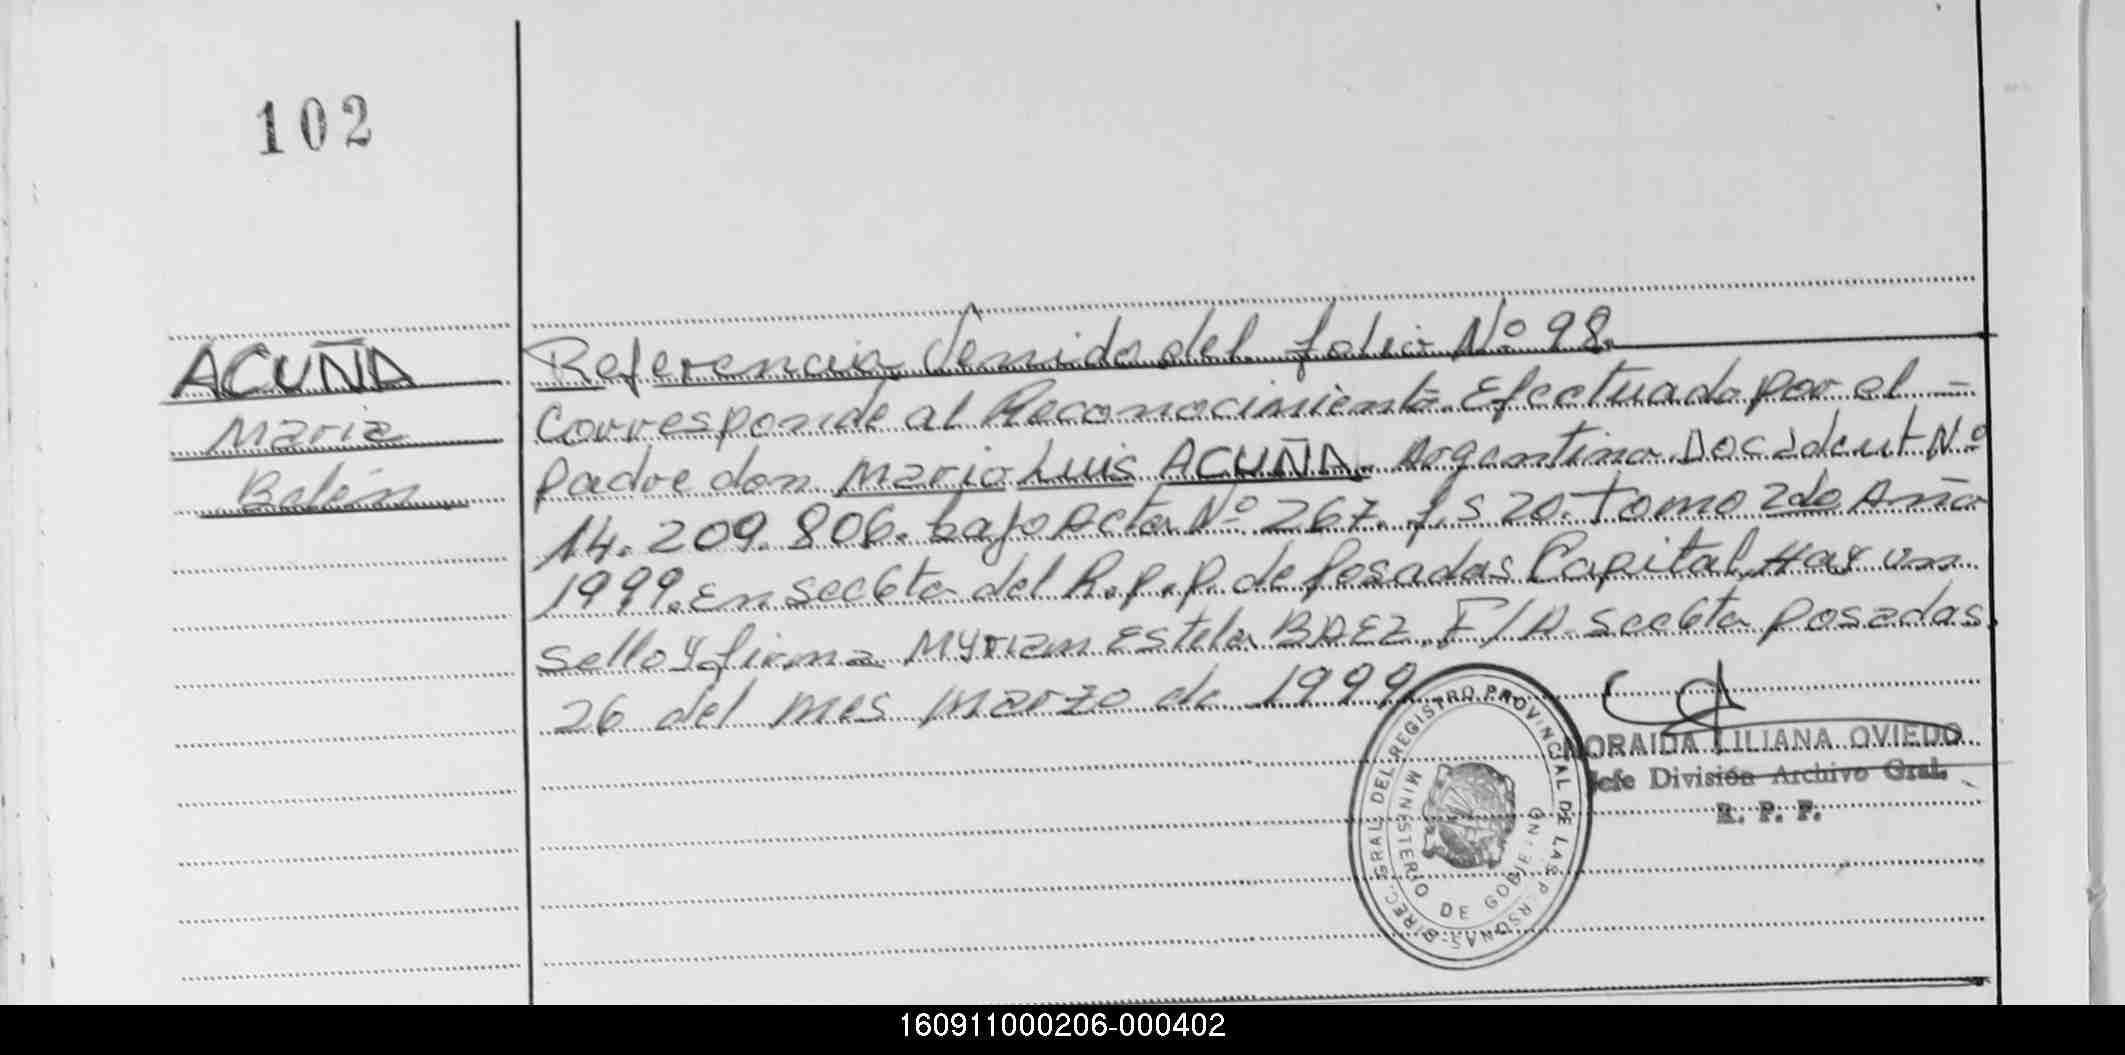 102
ACUÑA
Maria
Belén
Referencia Venida del folio Nº 98.
Corresponde al Reconocimiento Efectuado por el =
padre don Mario Luis ACUÑA. Argentino Doc Ident Nº
14.209.806. bajo Acta Nº 267. fs 20. Tomo 2do Año
1999. En secc 6ta del R.p.p. de Posadas Capital. Hay un
sello y firma Myriam Estela BAEZ. F/A. secc 6ta posadas.
26 del mes marzo de 1999.
DIREC. GRAL. DEL REGISTRO PROVINCIAL DE LAS PERSONAS
MINISTERIO DE GOBIERNO
NORAIDA LILIANA OVIEDO
Jefe División Archivo Gral.
R. P. P.
160911000206-000402